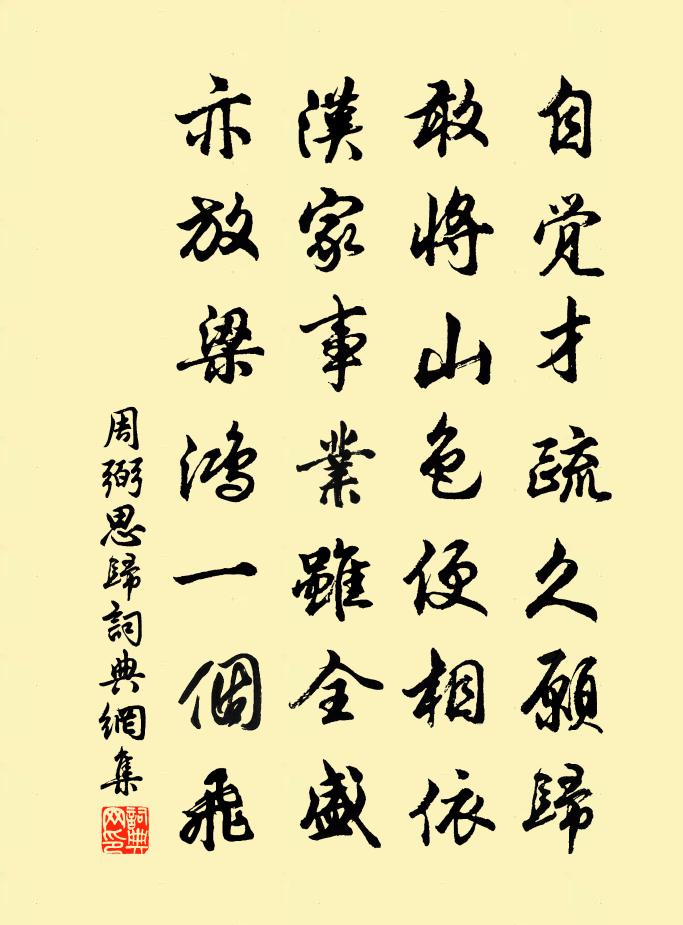 自觉才疏久願歸
敢將山色便相依
漢家事業雖全盛
亦放梁鴻一個飛
周弼思歸詞典網集
詞典网印